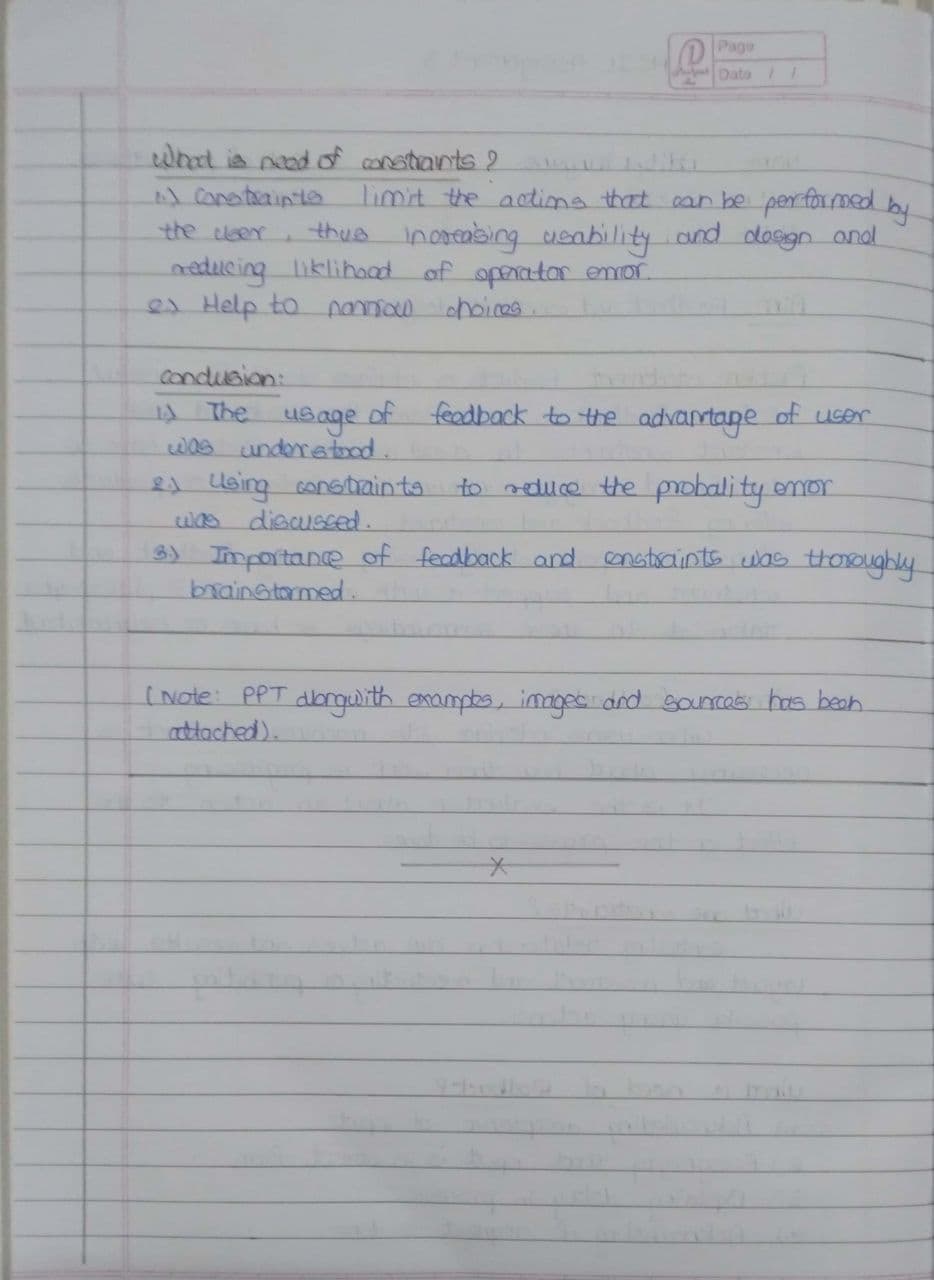 Page
Date / /
What is need of constraints?
1.) Constraints limit the actions that can be performed by
the user, thus increasing usability and design and
reducing liklihood of operator error.
2.) Help to narrow choices.
Conclusion:
1.) The usage of feedback to the advantage of user
was understood.
2.) Using constraints to reduce the probality error
was discussed.
3.) Importance of feedback and constraints was thoroughly
brainstormed.
(Note: PPT alongwith examples, images and sources has been
attached).
X